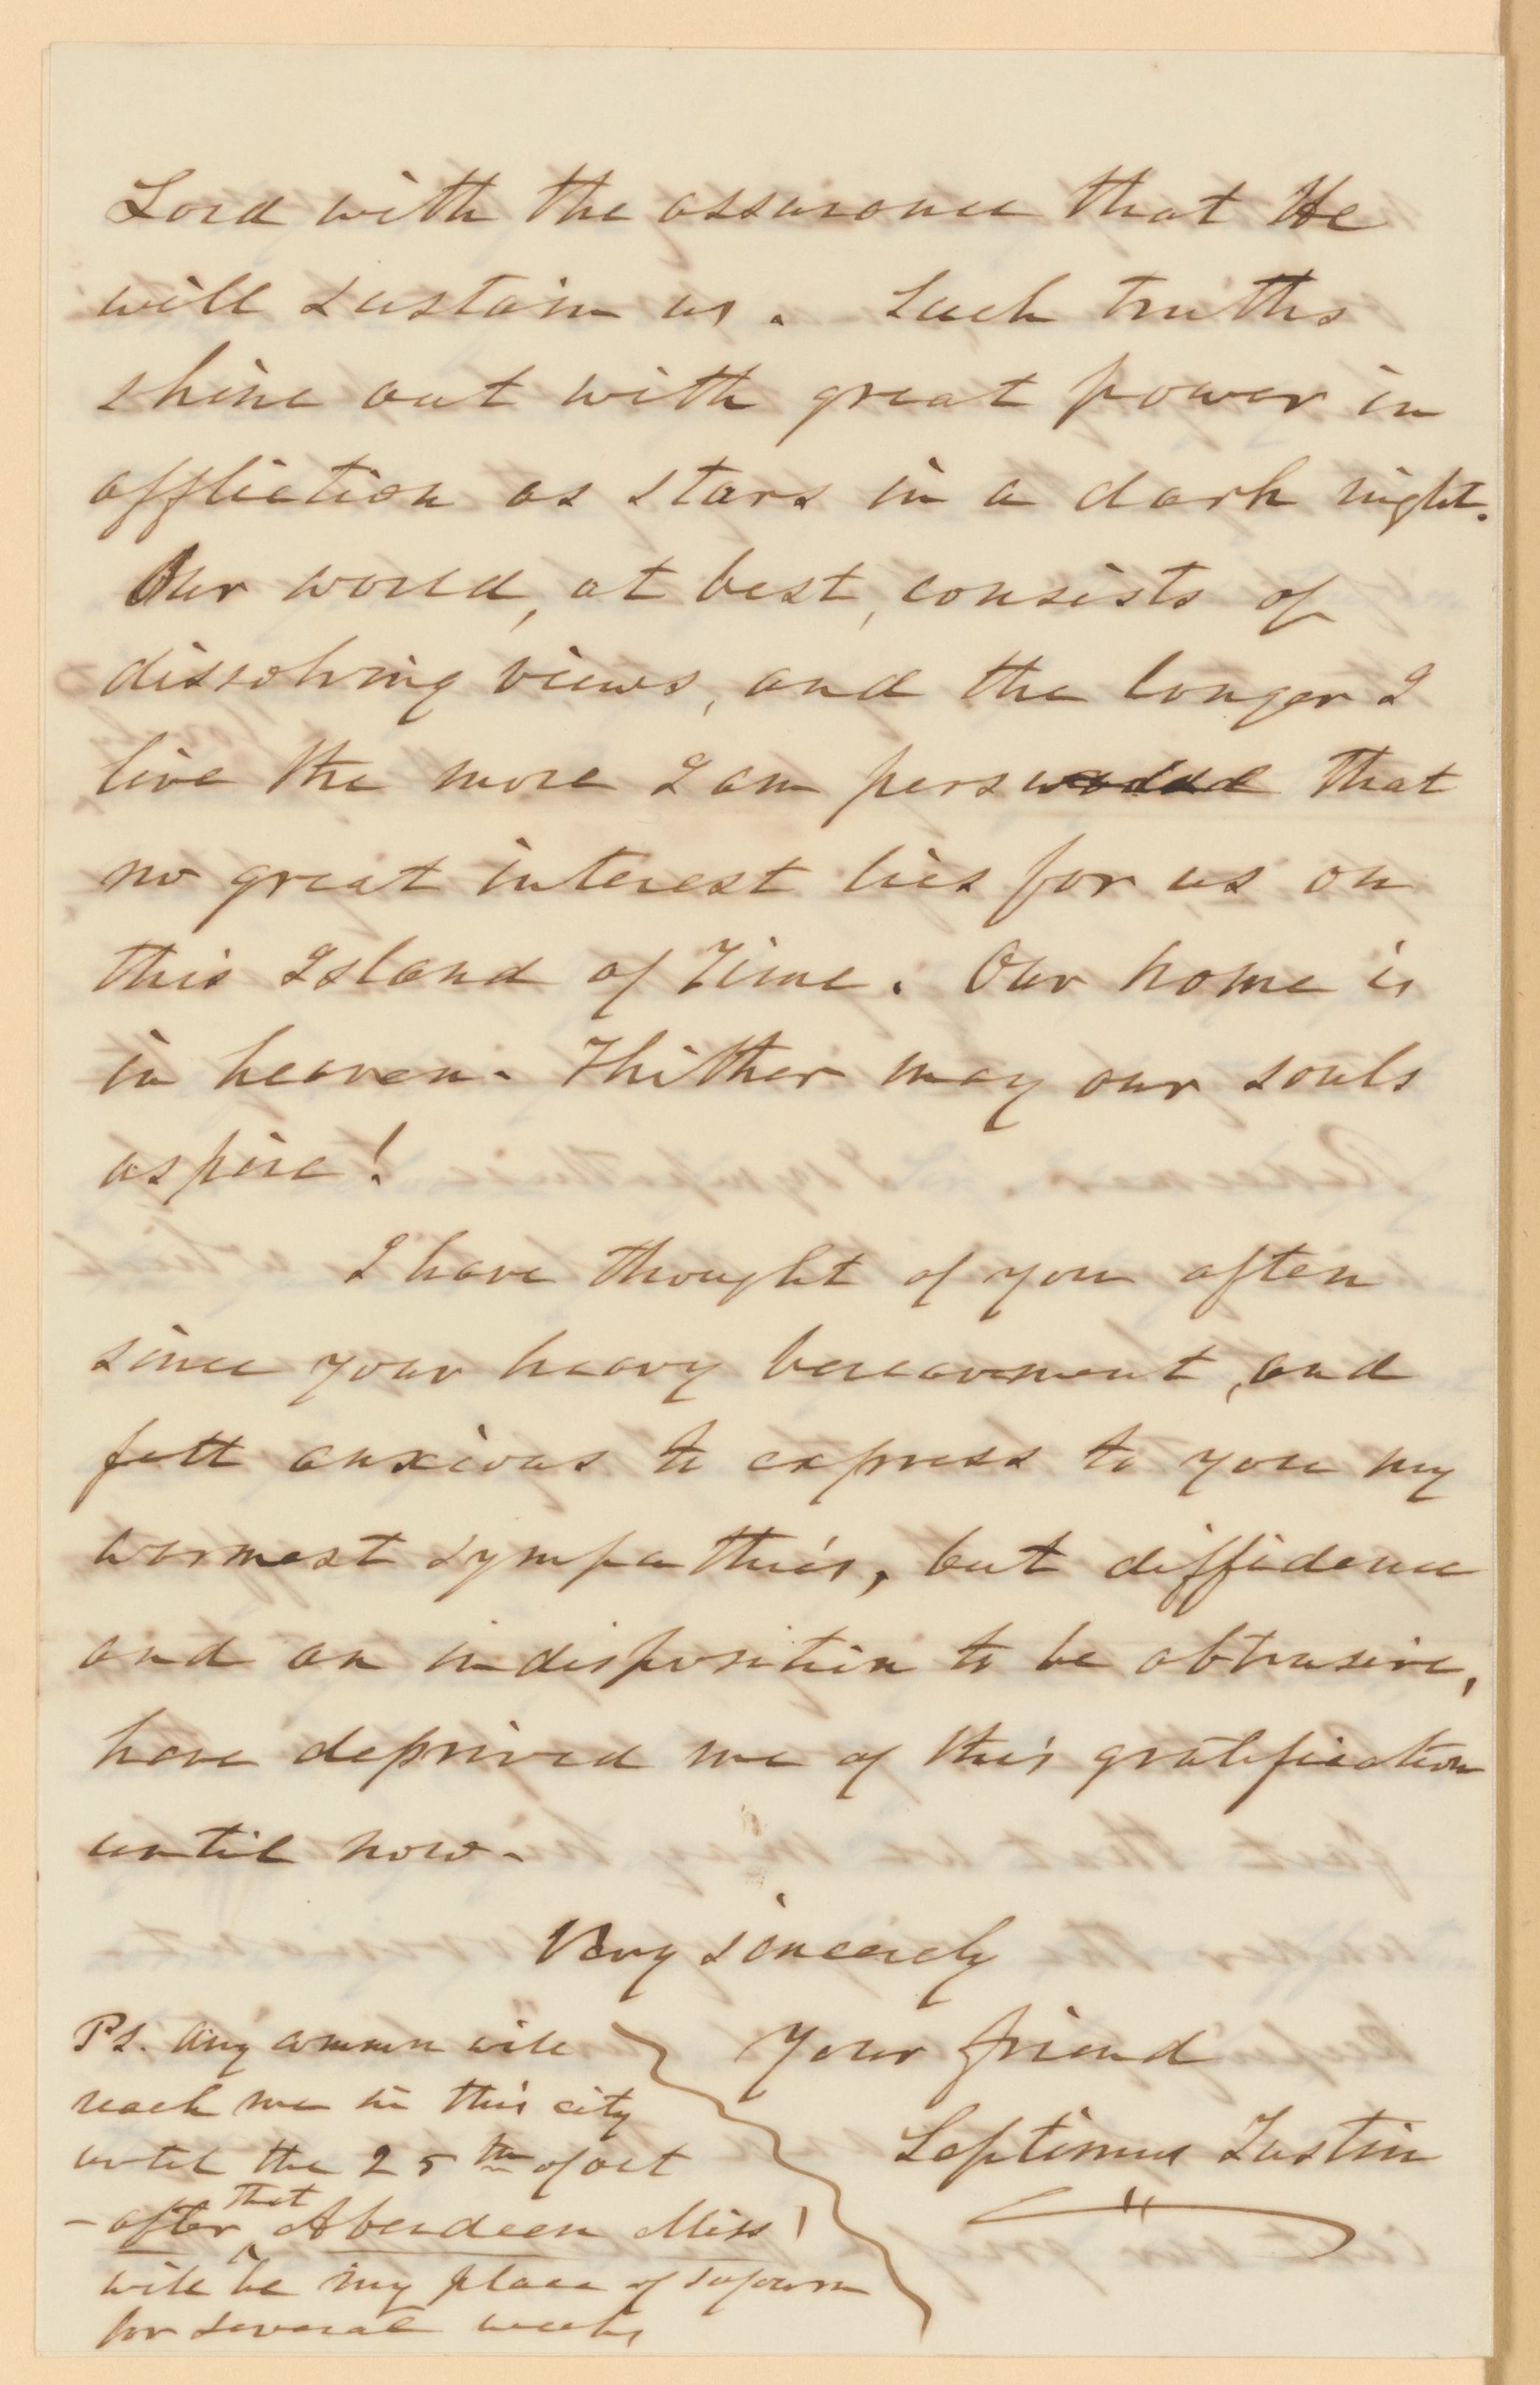 Lord with the assurance that He
will sustain us. Such truths
shine out with great power in
affliction as stars in a dark night.
Our world, at best, consists of
dissolving views, and the longer I
live the more I am perswaded that
no great interest lies for us on
this Island of Time. Our home is
in heaven. Thither may our souls
aspire!
I have thought of you often
since your heavy bereavement, and
felt anxious to express to you my
warmest sympathies, but diffidence
and an indisposition to be obtrusive,
have deprived me of this gratification
until now.
Very sincerely
Your friend
Septimus Tustin
Ps. Any commn will
reach me in this city
until the 25th of Oct
- after that Aberdeen Miss
will be my place of sojourn
for several weeks